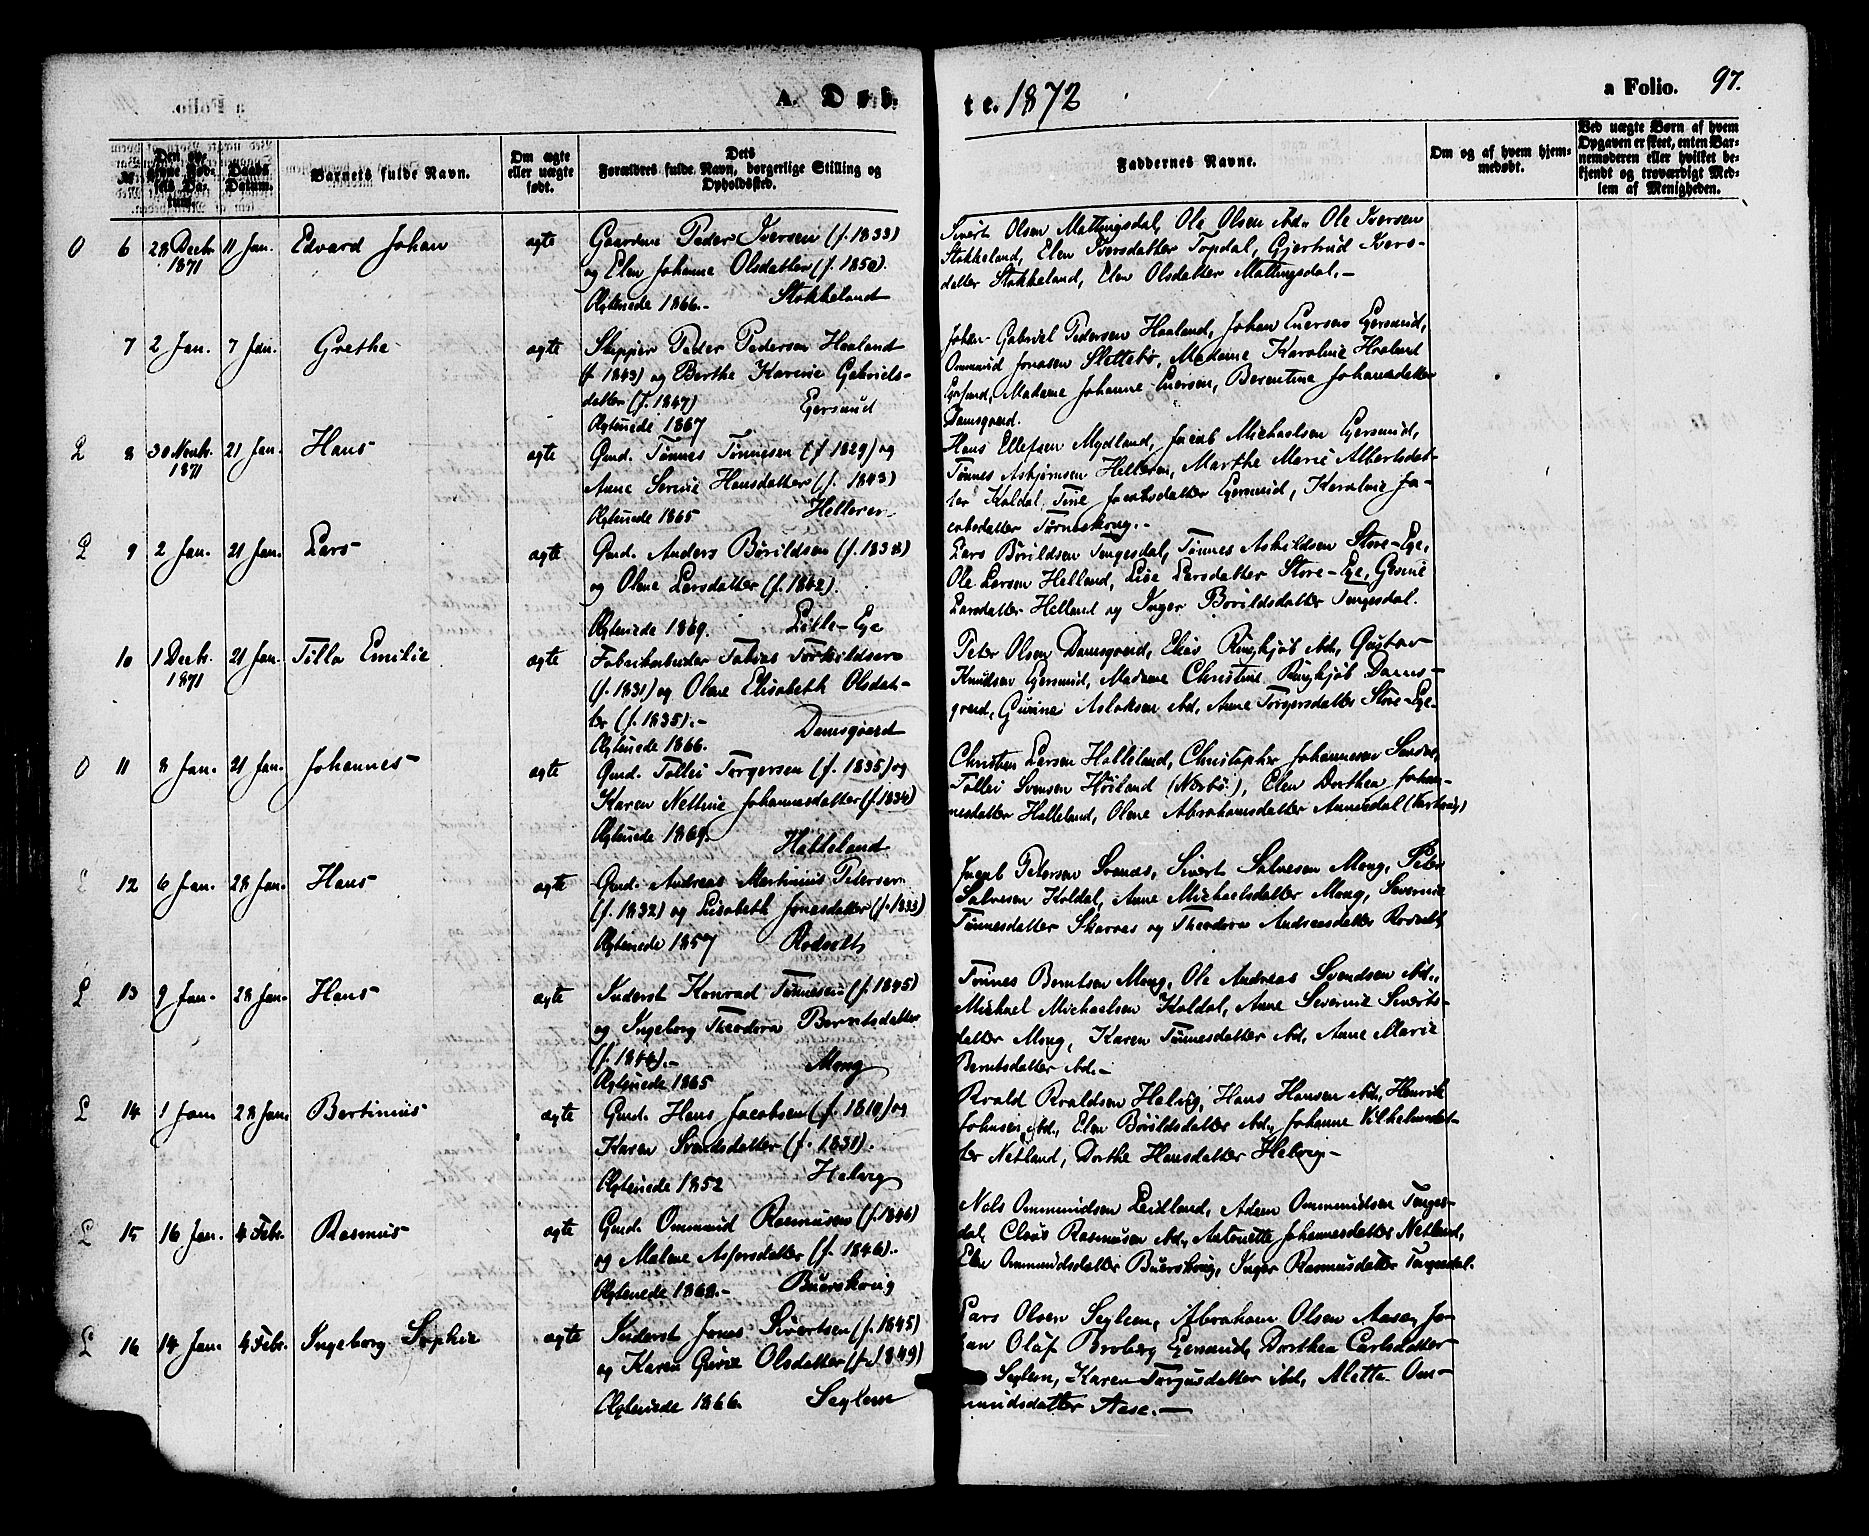 A. Døb-
te. 1872
a Folio. 97.
№
Dets
Om ægte eller uægte født.
Daabs Datum.
Barnets fulde Navn.
Forældres fulde Navn, borgerlige Stilling og Opholdssted.
Faddernes Navne.
Om og af hvem hjem-
medøbt.
Ved uægte Børn af hvem
Opgaven er skeet, enten Bar-
nemoderen eller hvilket be-
kjendt og troværdigt Med-
lem af Menigheden.
O 6 28 Decbr. 1871 11 Jan. Edvard Johan ægte Gaardm. Peder Iversen (f. 1833)
og Elen Johanne Olsdatter (f. 1850).
Ægteviede 1866.- Stokkeland
Sivert Olsen Mattingsdal, Ole Olsen ibd., Ole Iversen
Stokkeland, Elen Iversdatter Topdal, Gjertrud Ivers-
datter Stokkeland, Elen Olsdatter Mattingsdal.-
7 2 Jan. 7 Jan. Grethe ægte Skipper Peder Pedersen Haaland
(f. 1843) og Berthe Karine Gabriels-
datter (f. 1847) Egersund
Ægteviede 1867
Johan Gabriel Pedersen Haaland, Johan Iversen Egersund,
Ommund Jonasen Slettebø, Madame Karoline Haaland
Egersund, Madame Johanne Iversen, Berentine Johannesdatter
Damsgaard.
L 8 30 Novbr. 1871 21 Jan. Hans ægte Gmd. Tønnes Tønnesen (f 1829) og
Anne Serine Hansdatter (f. 1843)
Ægteviede 1865 Helleren
Hans Ellefsen Mydland, Jacob Michaelsen Egersund,
Tønnes Asbjørnsen Helleren, Marthe Marie Albertsdat-
ter Koldal, Tine Jacobsdatter Egersund, Karoline Ja-
cobsdatter Tørneskoug.-
L 9 2 Jan. 21 Jan. Lars ægte Gmd. Anders Børildsen (f. 1838)
og Olene Larsdatter (f. 1842).
Ægteviede 1869. Litle-Ege
Lars Børildsen Tengesdal, Tønnes Askildsen Store-Ege,
Ole Larsen Helland, Lise Larsdatter Store-Ege, Gesine
Larsdatter Helland og Inger Borildsdatter Tengesdal.
10 1 Decbr. 1871 21 Jan. Tilla Emilie ægte Fabrikarbeider Tobias Torkildsen
(f. 1831) og Olene Elisabeth Olsdat-
ter (f. 1835).-
Ægteviede 1866. Damsgaard
Peter Olsen Damsgaard, Elias Ringkjøb ibd, Gustav
Knudsen Egersund, Madame Christine Ringkjøb Dams-
gaard, Gurine Aslaksen ibd., Anne Torgersdatter Store-Ege.
O 11 8 Jan. 21 Jan. Johannes ægte Gmd. Tollei Torgersen (f. 1835) og
Karen Nelline Johannesdatter (f. 1834)
Ægteviede 1869. Hatleland
Christen Larsen Halleland, Christopher Johannesen
Tollei Svensen Høiland (Nærbø), Elen Dorthea Johan-
nesdatter Halleland, Olene Abrahamsdatter Aunesdal
L 12 6 Jan. 28 Jan. Hans ægte Gmd. Andreas Martinius Petersen
(f. 1832) og Lisabeth Jonasdatter (f. 1833)
Ægteviede 1857 Rodvelt
Jacob Petersen Svanes, Sivert Salvesen Mong, Peter
Salvesen Koldal, Anne Michaelsdatter Mong, Severine
Tønnesdatter Skarnes og Theodora Andreasdatter Rodvelt
L 13 9 Jan. 28 Jan. Hans ægte Inderst Konrad Tønnesen (f. 1845)
og Ingeborg Theodora Berntsdatter
(f. 1846).-
Ægteviede 1865 Mong
Tønnes Berntsen Mong, Ole Andreas Svendsen ibd.,
Michael Michaelsen Koldal, Anne Severine Siverts-
datter Mong, Karen Tønnesdatter ibd, Anne Marie
Berntsdatter ibd.-
L 14 1 Jan. 28 Jan. Bertinius ægte Gmd. Hans Jacobsen (f. 1810) og
Karen Svendsdatter (f. 1831).
Ægteviede 1852 Helvig
Roald Roaldsen Helvig, Hans Hansen ibd., Henrik
Johnsen ibd., Elen Børildsdatter ibd., Johanne Vilhelmsdat-
ter Netland, Dorthe Hansdatter Helvig-
L 15 16 Jan. 4 Febr. Rasmus ægte Gmd. Ommund Rasmusen (f. 1846)
og Malene Asforsdatter (f. 1846).
Ægteviede 1868.- Buerskoug
Nels Ommundsen Leidland, Adam Ommundsen Tenges-
dal, Claus Rasmusen ibd., Antonette Johannesdatter Netland,
Elen Ommundsdatter Buerskoug, Inger Rasmusdatter Tengesdal.
L 16 14 Jan. 4 Febr. Ingeborg Sophie ægte Inderst Jonas Sivertsen (f. 1845)
og Karen Gurie Olsdatter (f. 1843)
Ægteviede 1866. Seglem
Lars Olsen Seglem, Abraham Olsen Aase, Jo-
han Oluf Broberg Egersund, Dorthea Carlsdatter
Seglem, Karen Torgersdatter ibd., Mette Om-
mundsdatter Aase.-